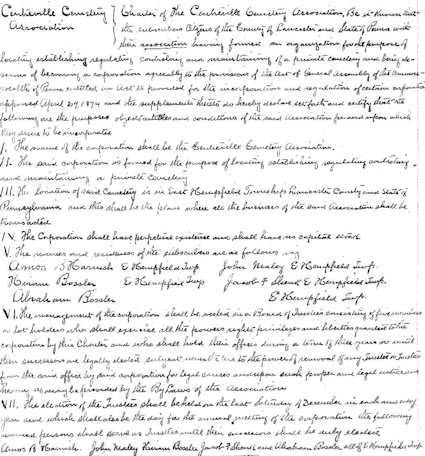 Centreville Cemetery
Association
Charter of the Centreville Cemetery Association, Be it Known that
the subscribers Citizens of the County of Lancaster and State of Penna with
their association having formed an organization for the purpose of
locating establishing regulating controling and maintaining of a private cemetery and being de-
sirous of becoming a corporation agreeably to the provisions of the Act of General Assembly of the Common-
wealth of Penna entitled an Act to provide for the incorporation and regulation of certain corporations
approved April 29, 1874 and the supplements thereto do hereby declare set forth and certify that the
following are the purposes objects articles and conditions of the said Association for and upon which
they desire to be incorporated
I. The name of the corporation shall be the Centreville Cemetery Association.
II. The said corporation is formed for the purpose of locating establishing regulating controling
and maintaining a private cemetery
III. The location of said Cemetery is in East Hempfield Township Lancaster County and State of
Pennsylvania, and this shall be the place where all the business of the said Association shall be
transacted
IV. The Corporation shall have perpetual existence and shall have no capital stock
V. The names and residences of the subscribers are as follows
Amos B Harnish E Hempfield Twp John Maley E Hempfield Twp.
Hiram Bossler E Hempfield Twp Jacob F Shenk E Hempfield Twp.
Abraham Bossler E Hempfield Twp.
VI. The management of the corporation shall be vested in a Board of Trustees consisting of five members
or lot holders who shall exercise all the powers rights privileges and liberties granted to the
corporation by this Charter and who shall hold their offices during a term of three years or until
their successors are legally elected subject to the power of removal of any Trustee or Trustees
from the said office by said corporation for legal causes and upon such proper and legal notice and
hearing as may be provided by the By Laws of the Association
VII. The election of the Trustees shall be held on the last Saturday of December in each and every
year and which shall also be the day for the annual meeting of the corporation the following
named persons shall serve as Trustees until their successors shall be duly elected
Amos B Harnish. John Maley Hiram Bossler Jacob F Shenk and Abraham Bossler, all of E Hempfield Twp